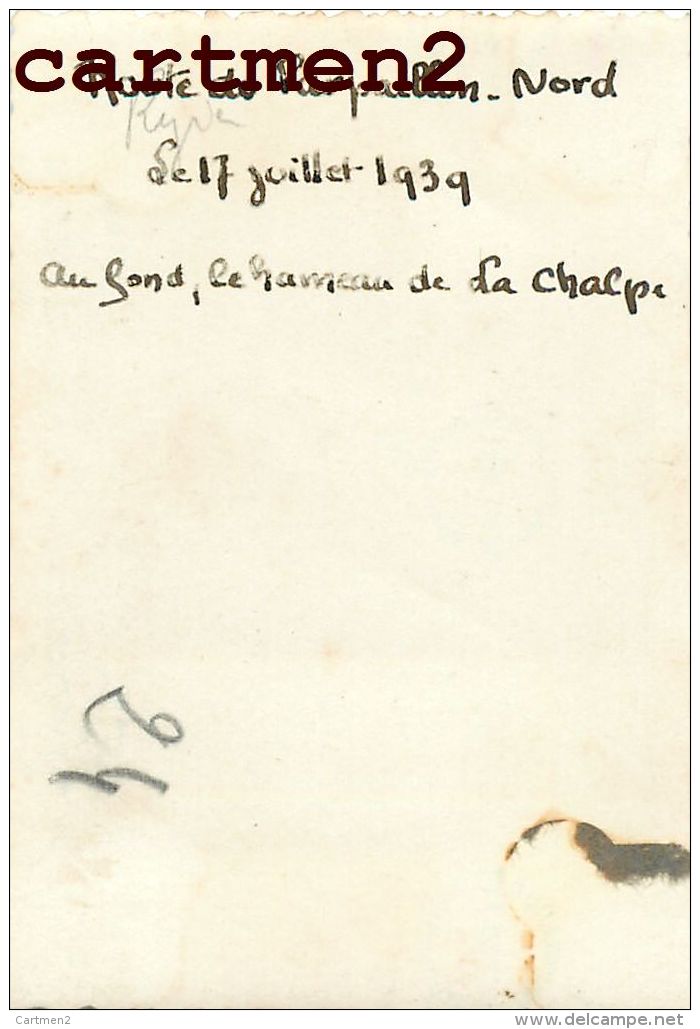 cartmen2
Route du Parpaillon - Nord
Le 17 juillet 1939
Au fond, le hameau de La Chalpe
42
Cartmen2
www.delcampe.net